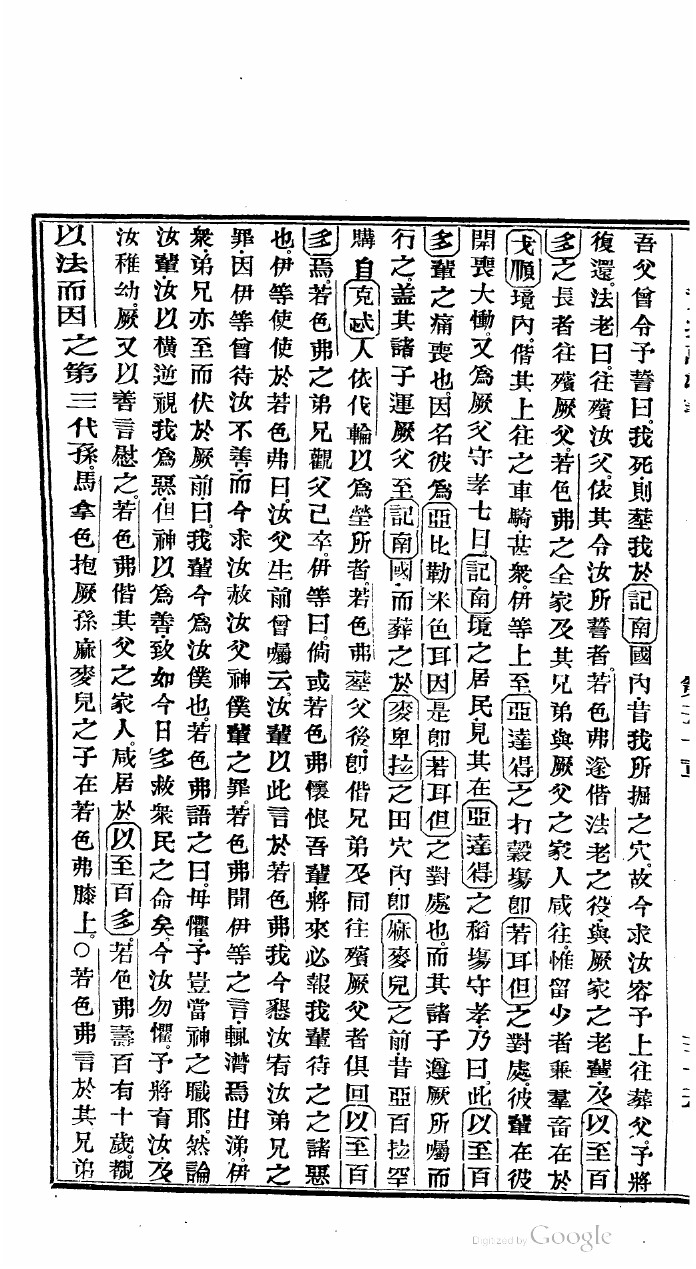 吾父曾令予誓曰。我死。則塟我於記南國內。昔我所掘之穴。故今求汝容予上往葬父。予將
復還。法老曰。往殯汝父。依其令汝所誓者。若色弗遂偕法老之役。與厥家之老輩。及以至百
多之長者往殯厥父。若色弗之全家及其兄弟與厥父之家人咸往。惟留少者乘羣畜在於
戈順境內。偕其上往之車騎甚衆。伊等上至亞達得之打穀塲即若耳但之對處。彼輩在彼
開喪大慟。又爲厥父守孝七日。記南境之居民。見其在亞達得之稻塲守孝。乃曰。此以至百
多輩之痛喪也。因名彼爲亞比勒米色耳因。是卽若耳但之對處也。而其諸子遵厥所囑而
行之。盖其諸子運厥父至記南國。而葬之於麥卑拉之田穴內。卽麻麥兒之前。昔亞百拉罕
購自克忒人依伐輪以爲塋所者。若色弗塟父後。卽偕兄弟及同往殯厥父者俱回以至百
多焉。若色弗之弟兄觀父已卒。伊等曰。倘或若色弗懷恨吾輩。將來必報我輩待之之諸惡
也。伊等使使於若色弗曰。汝父生前曾囑云。汝輩以此言於若色弗。我今懇汝宥汝弟兄之
罪。因伊等曾待汝不善。而今求汝赦汝父神僕輩之罪。若色弗聞伊等之言。輒潸焉出涕。伊
衆弟兄亦至而伏於厥前曰。我輩今爲汝僕也。若色弗語之曰。毋懼。予豈當神之職耶。然論
汝輩。汝以橫逆視我爲惡。但神以爲善。致如今日多救衆民之命矣。今汝勿懼。予將育汝及
汝稚幼。厥又以善言慰之。若色弗偕其父之家人。咸居於以至百多。若色弗壽百有十歲。覩
以法而因之第三代孫。馬拿色抱厥孫麻麥兒之子在若色弗膝上。〇若色弗言於其兄弟
Digitized by Google